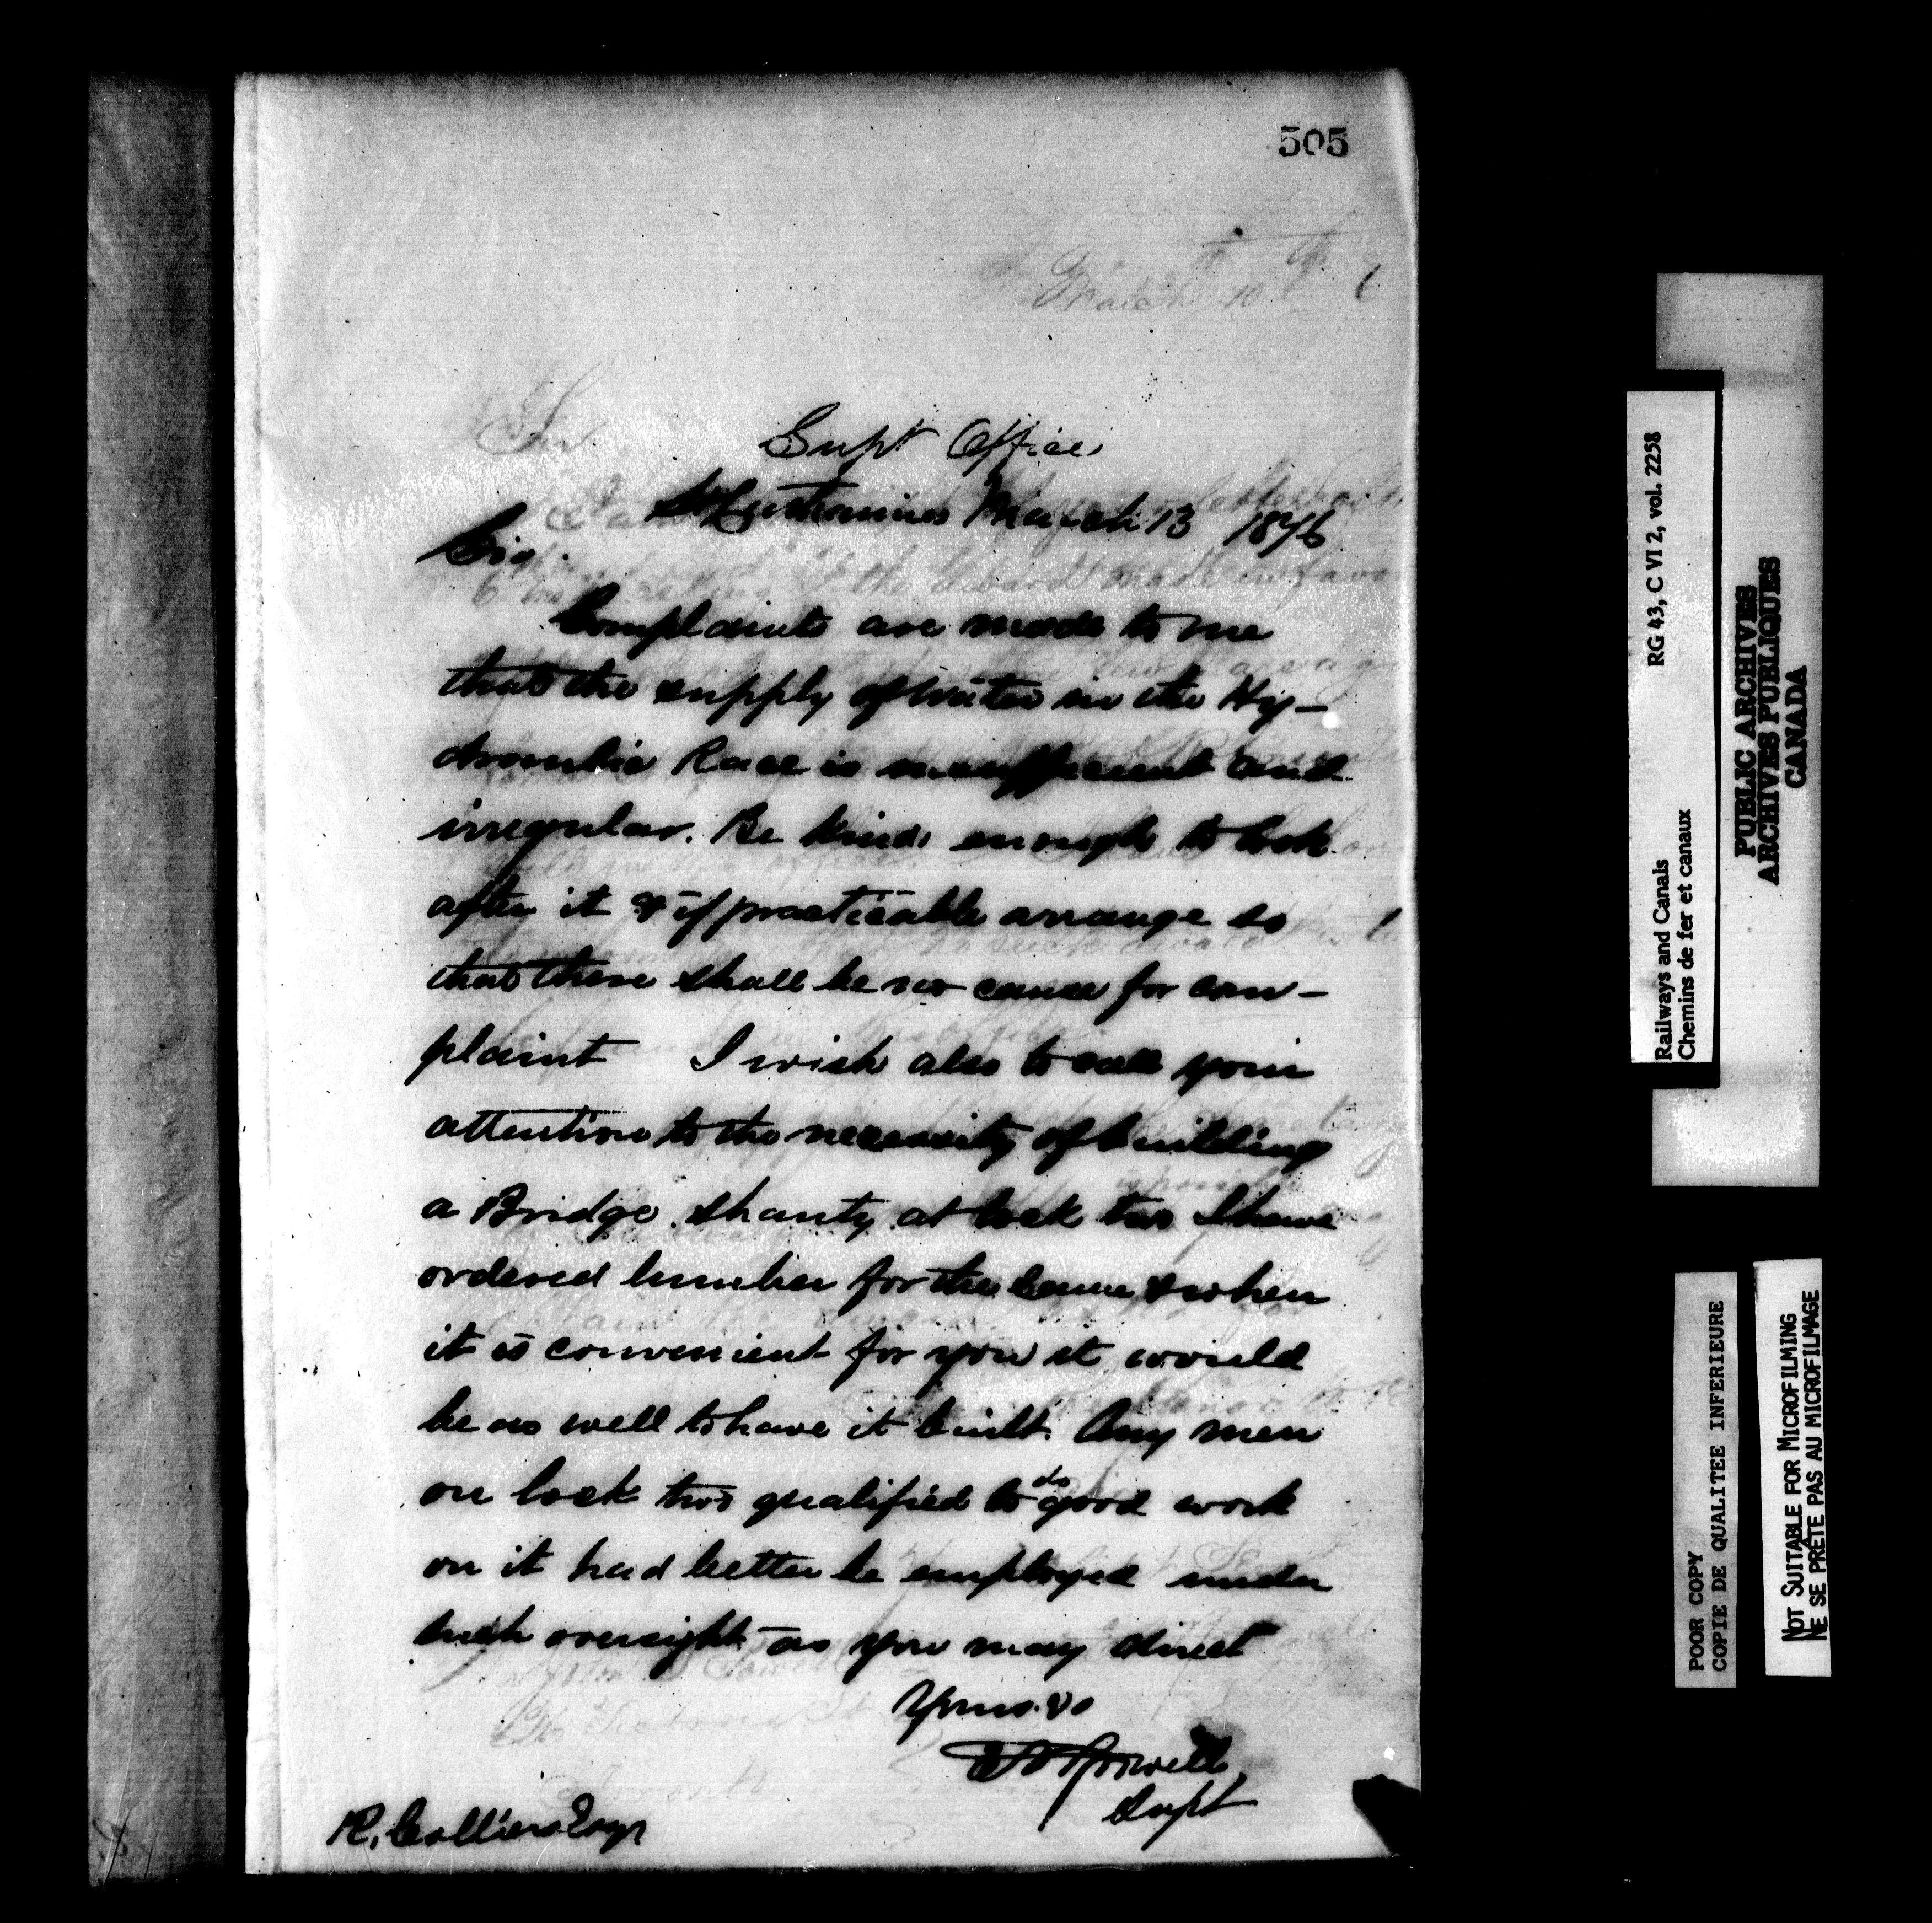 505
Supt Office
St Catharines March 13 1876
Sir.
Complaints are made to me
that the supply of water in the Hy-
draulic Race is insufficient and
irregular. Be kind enough to look
after it & if practicable arrange so
that there shall be no cause for com-
plaint I wish also to call your
attention to the necessity of building
a Bridge shanty at lock two I have
ordered lumber for the same & when
it is convenient for you it would
be as well to have it built. Any men
on lock two qualified to do good work
on it had better be employed under
such oversight as you may direct
Yours &c
Supt
R. Colliers Esqr
RG 43, C VI 2, vol. 2258
Railways and Canals
Chemins de fer et canaux
PUBLIC ARCHIVES
ARCHIVES PUBLIQUES
CANADA
POOR COPY
COPIE DE QUALITEE INFERIEURE
NOT SUITABLE FOR MICROFILMING
NE SE PRÊTE PAS AU MICROFILMAGE